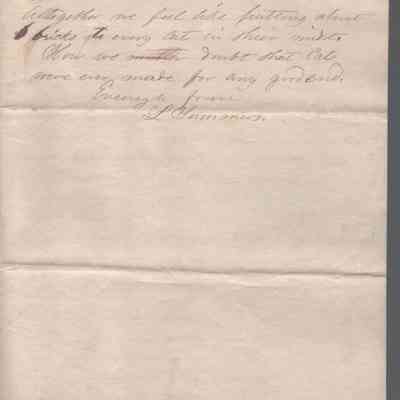 Altogether we feel like putting about
6 bricks to every cat in their midst.
How we doubt that Cats
were ever made for any good end.
Enough from
L Summers.